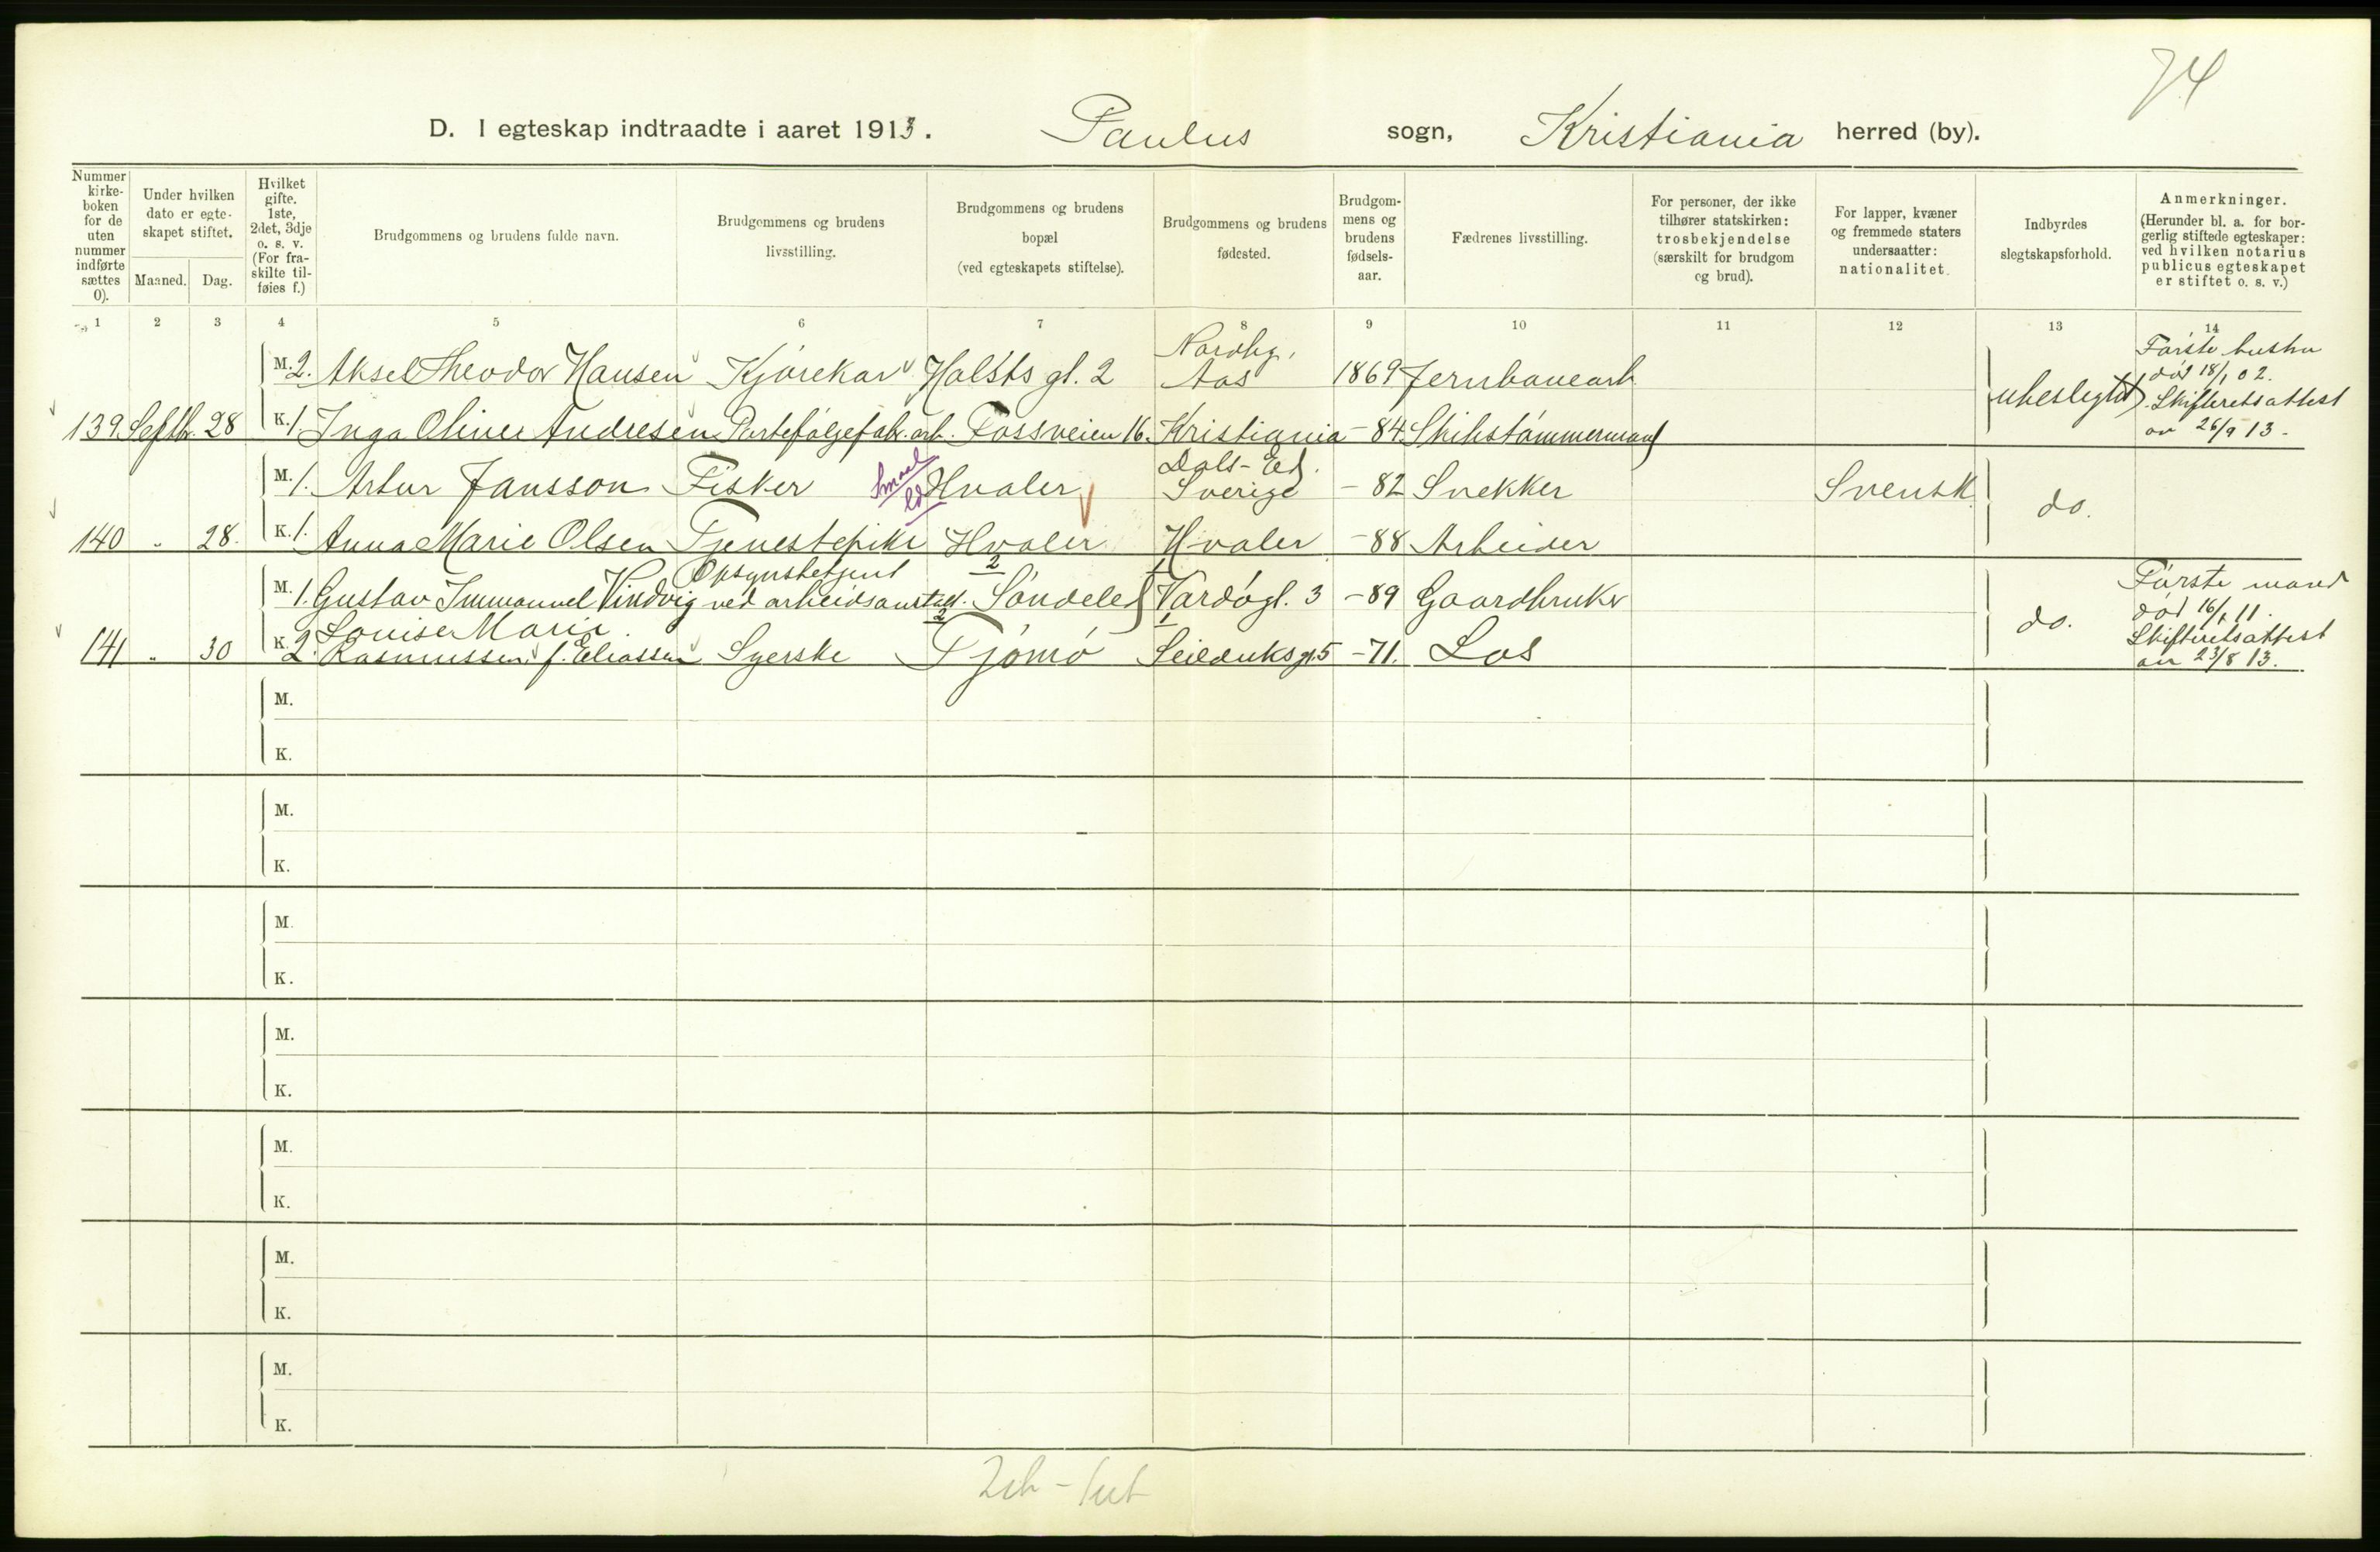 74
D. I egteskap indtraadte i aaret 1913. Paulus sogn, Kristiania herred (by).
Nummer kirke-boken for de uten nummer indførte sættes 0).
Under hvilken dato er egte-skapet stiftet.
Maaned. Dag.
Hvilket gifte. 1ste, 2det, 3dje o. s. v. (For fra-skilte til-føies f.)
Brudgommens og brudens fulde navn.
Brudgommens og brudens livsstilling.
Brudgommens og brudens bopæl (ved egteskapets stiftelse).
Brudgommens og brudens fødested.
Brudgom-mens og brudens fødsels-aar.
Fædrenes livsstilling.
For personer, der ikke tilhører statskirken: trosbekjendelse (særskilt for brudgom og brud).
For lapper, kvæner og fremmede staters undersaatter: nationalitet.
Indbyrdes slegtskapsforhold.
Anmerkninger. (Herunder bl. a. for bor-gerlig stiftede egteskaper: ved hvilken notarius publicus egteskapet er stiftet o. s. v.)
1 2 3 4 5 6 7 8 9 10 11 12 13 14
M. 2. Aksel Theodor Hansen Kjørekar Holsts gt. 2 Nordby, Aas 1869 Jernbanearb. ubeslegtet Første hustru død 18/1 02. Skifteretsattest av 26/9 13.
139 Septbr. 28 K. 1. Inga Oline Andresen Portefølgefabr.arb. Fossveien 16. Kristiania -84 Skibstømmermand
M. 1. Artur Jansson Fisker Smaal Hvaler Dals-Ed. Sverige -82 Snekker Svensk do.
140 " 28. K. 1. Anna Marie Olsen Tjenestepike Hvaler Hvaler -88 Arbeider
M. 1. Gustav Immanuel Vindvig Opsynsbetjent ved arbeidsanstalt. 2 Søndeled Vardøgt. 3 -89 Gaardbruker do. Første mand død 16/1 11. Skifteretsattest av 23/8 13.
141 " 30 K. 2. Louise Marie Rasmussen f. Eliassen Syerske 2 Tjømø 1 Seilduksgt. 5 -71. Los
M.
K.
M.
K.
M.
K.
M.
K.
M.
K.
M.
K.
M.
K.